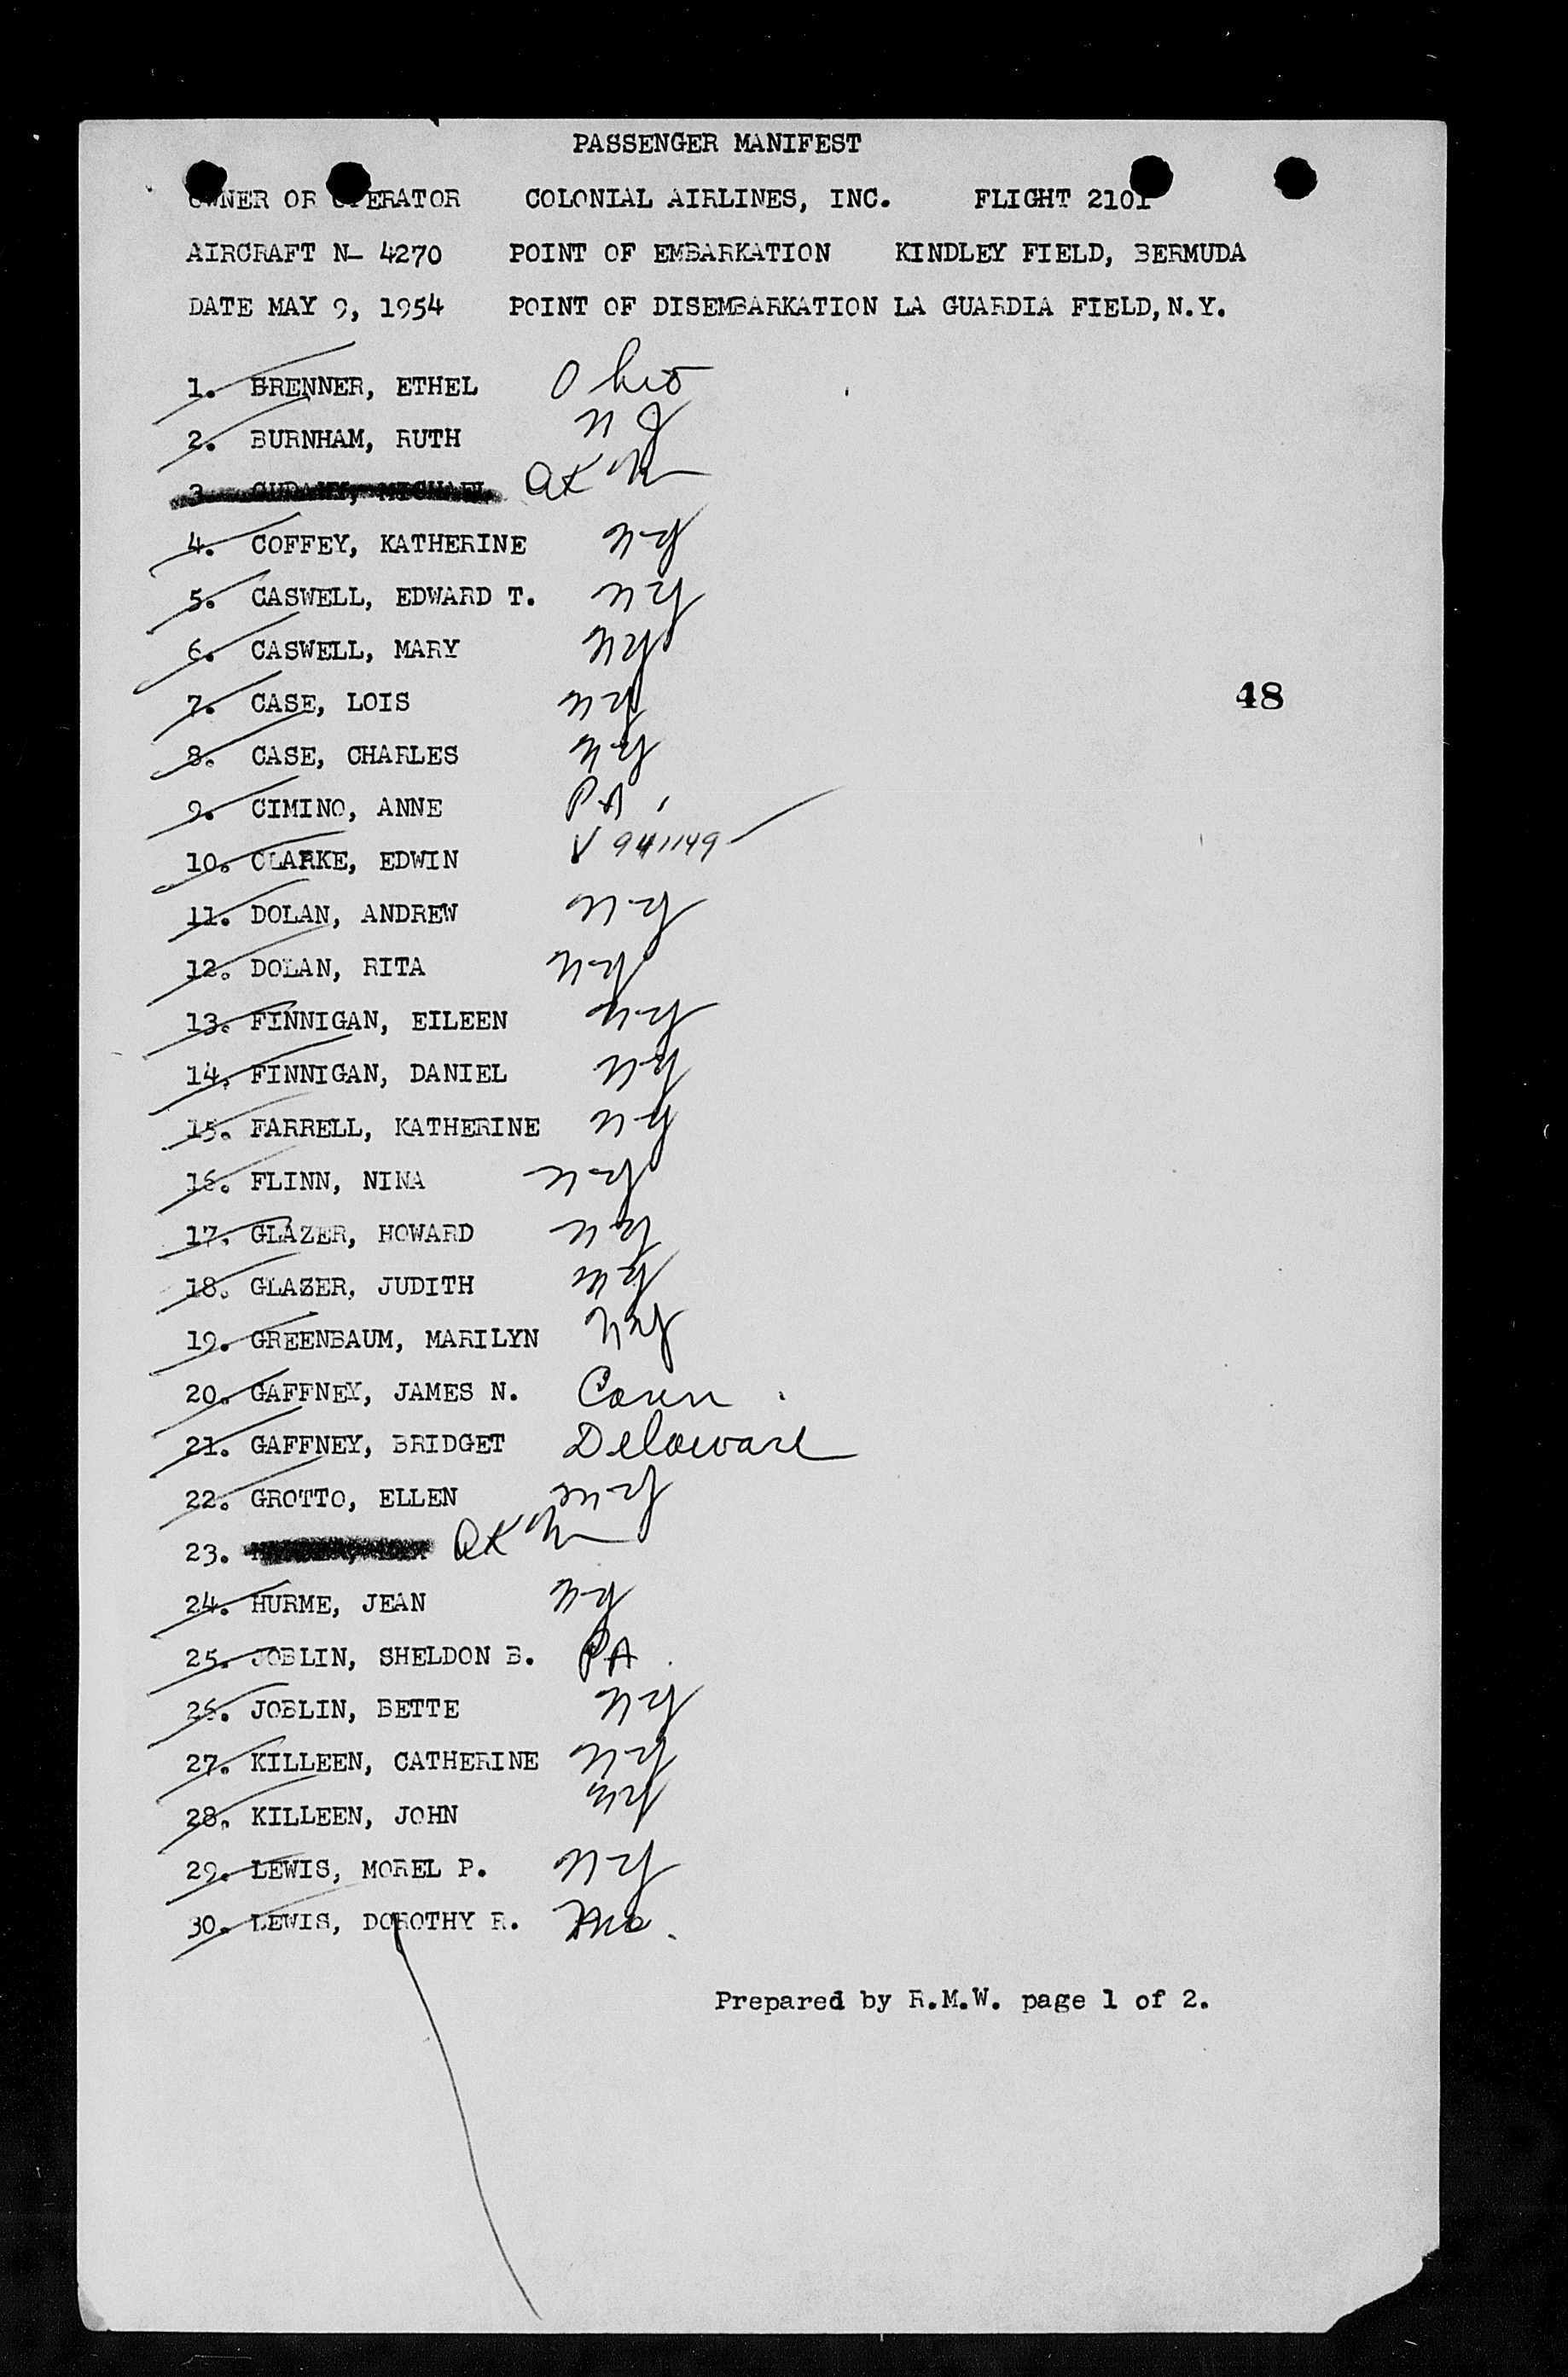 PASSENGER MANIFEST
OWNER OR OPERATOR COLONIAL AIRLINES, INC. FLIGHT 2101
AIRCRAFT N- 4270 POINT OF EMBARKATION KINDLEY FIELD, BERMUDA
DATE MAY 9, 1954 POINT OF DISEMBARKATION LA GUARDIA FIELD, N.Y.
1. BRENNER, ETHEL Ohio
2. BURNHAM, RUTH NJ
3. MICHAEL OK
4. COFFEY, KATHERINE NY
5. CASWELL, EDWARD T. NY
6. CASWELL, MARY NY
7. CASE, LOIS NY
8. CASE, CHARLES NY
9. CIMINO, ANNE PA
10. CLARKE, EDWIN V 941149
11. DOLAN, ANDREW NY
12. DOLAN, RITA NY
13. FINNIGAN, EILEEN NY
14. FINNIGAN, DANIEL NY
15. FARRELL, KATHERINE NY
16. FLINN, NINA NY
17. GLAZER, HOWARD NY
18. GLAZER, JUDITH NY
19. GREENBAUM, MARILYN NY
20. GAFFNEY, JAMES N. Conn
21. GAFFNEY, BRIDGET Delaware
22. GROTTO, ELLEN NY
23. OK
24. HURME, JEAN NY
25. JOBLIN, SHELDON B. PA
26. JOBLIN, BETTE NY
27. KILLEEN, CATHERINE NY
28. KILLEEN, JOHN NY
29. LEWIS, MOREL P. NY
30. LEWIS, DOROTHY R. Mo.
48
Prepared by R.M.W. page 1 of 2.